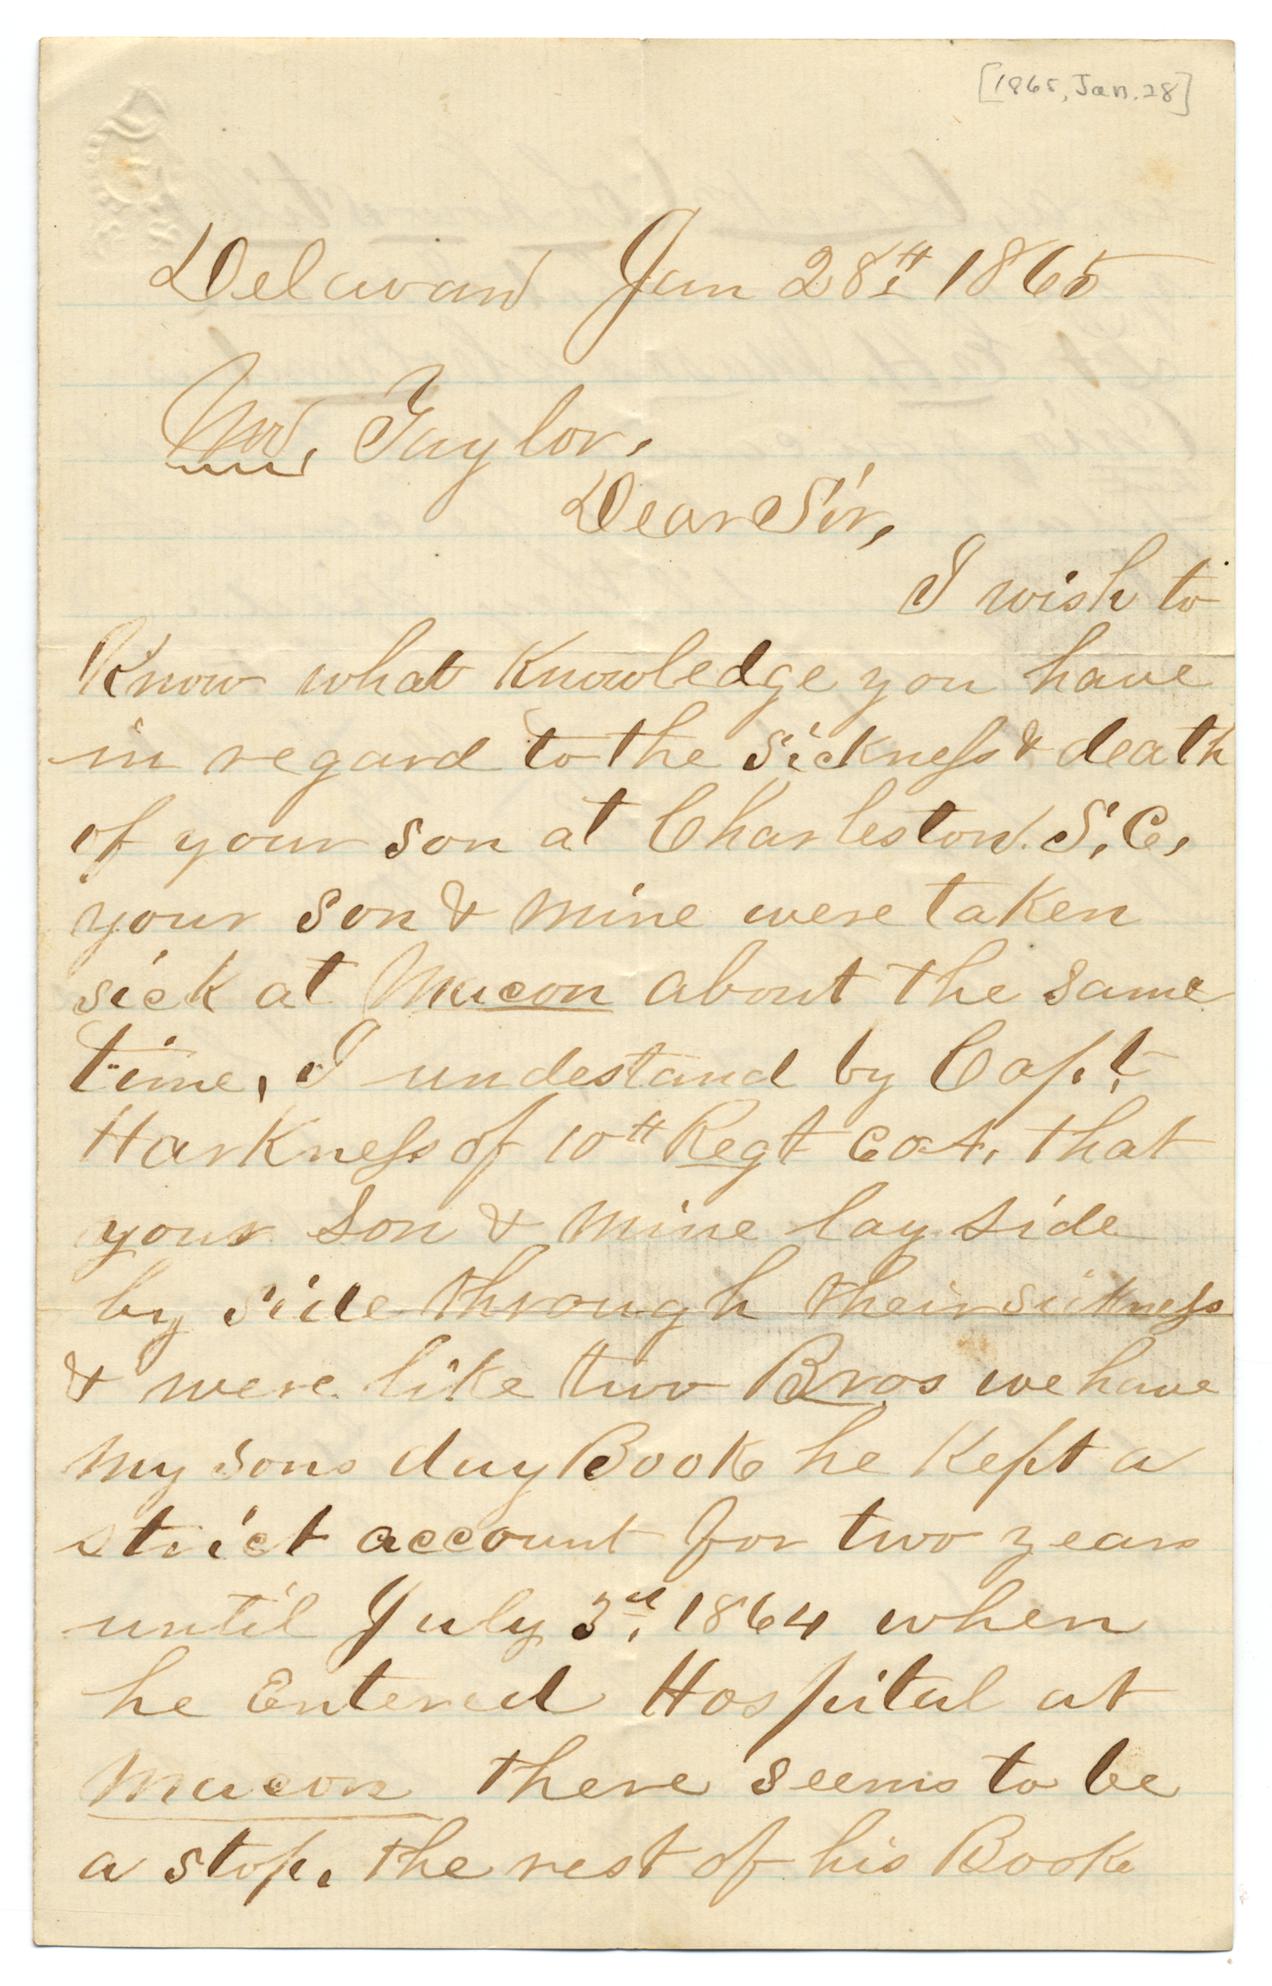 [1865, Jan. 28]
Delaware Jan 28th 1865
Mr. Taylor,
Dear Sir,
I wish to
Know what Knowledge you have
in regard to the Sickness & death
of your son at Charleston. S. C,
your son & mine were taken
sick at Macon about the same
time, I undestand by Capt.
Harkness of 10th Regt Co A, that
your Son & mine lay side
by side through their sickness
& were like two Bros we have
my sons day Book he Kept a
strict account for two years
until July 3rd, 1864 when
he Entered Hospital at
Macon there seems to be
a stop. the rest of his Book